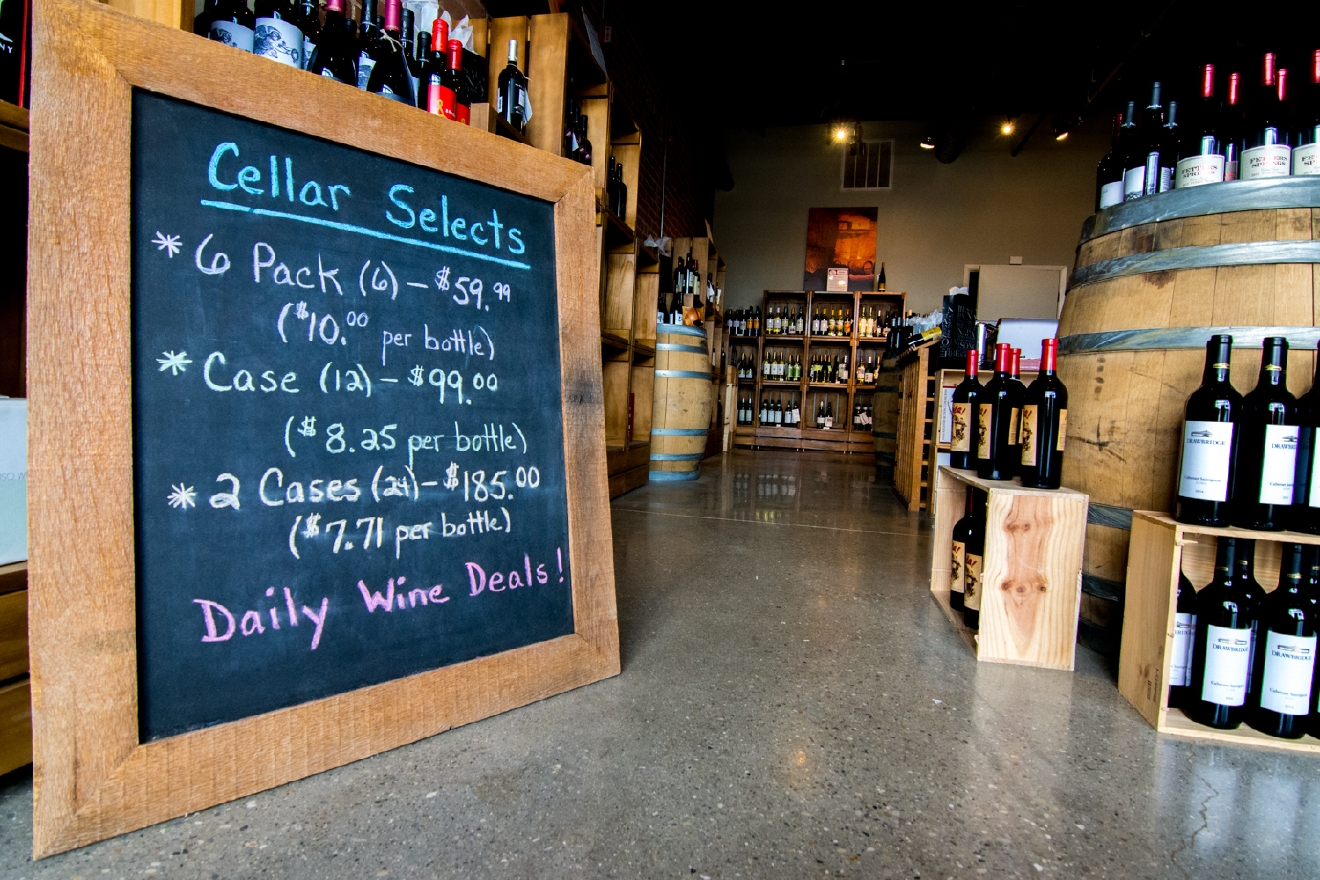 Cellar Selects
* 6 Pack (6) – $59.99
($10.00 per bottle)
* Case (12) – $99.00
($8.25 per bottle)
* 2 Cases (24) – $185.00
($7.71 per bottle)
Daily Wine Deals!
FETTERS
SPRINGS
DRAWBRIDGE
Cabernet Sauvignon
DRAWBRIDGE
Cabernet Sauvignon
DRAWBRIDGE
Cabernet Sauvignon